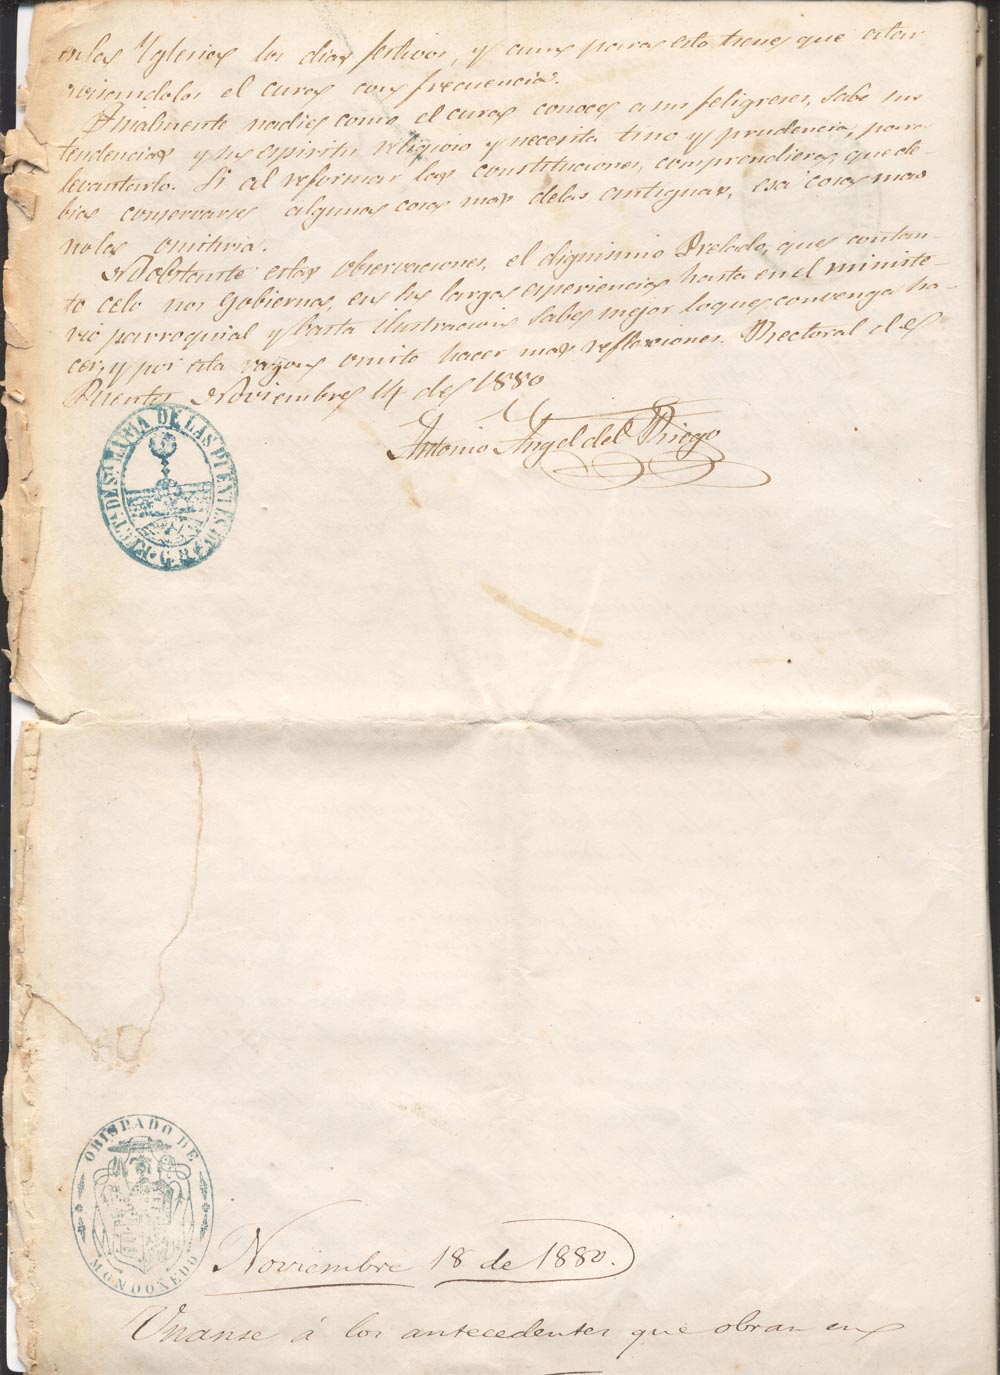 en las Yglesias los dias festivos, y aun para esto tiene que estar
avisandolos el cura con frecuencia.
Finalmente nadie como el cura conoce a sus feligreses, sabe sus
tendencias y su espiritu religioso y necesita tino y prudencia, para
levantarlo. Si al reformar las constituciones, comprendiera, que de-
bia conservarse alguna cosa mas delas antiguas, esa cosa mas
no las omitiria.
No obstante estas observaciones, el dignisimo Prelado, que con tan-
to celo nos gobierna, en su larga esperiencia hasta en el ministe-
rio parroquial y basta ilustracion sabe mejor loque convenga ha-
cer, y por esta razon omito hacer mas reflexiones. Rectoral de
Puentes Noviembre 14 de 1880
Antonio Angel del Riego
RECT. DE STA MARIA DE LAS PUENTES DE G. R.
OBISPADO DE
MONDOÑEDO
Noviembre 18 de 1880.
Unanse á los antecedentes que obran en